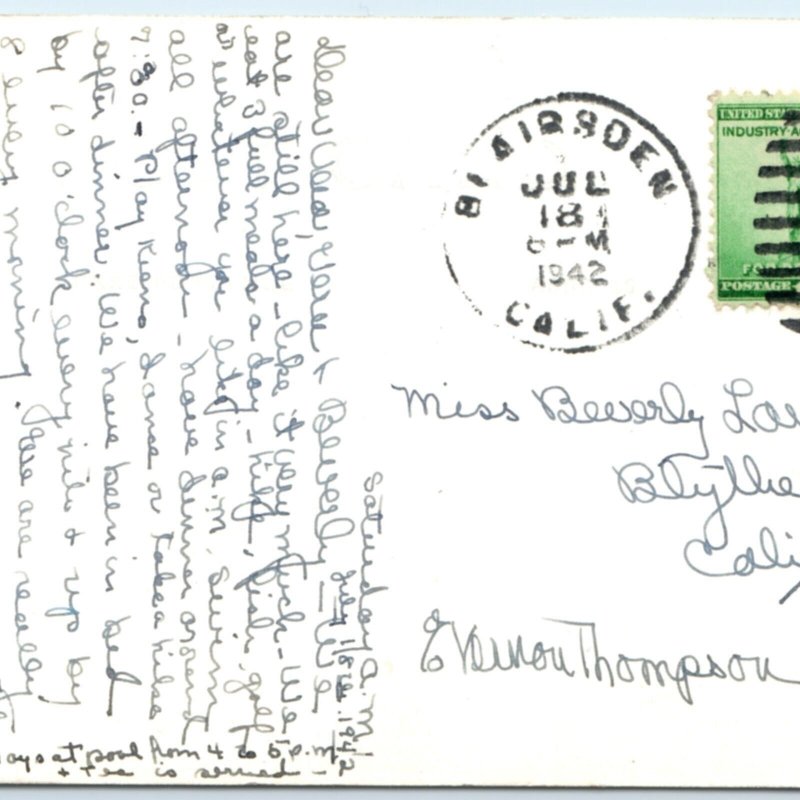 Saturday a.m.
July 18th 1942
Dear Clea, Vere + Beverly — We
are still here - like it very much - We
eat 3 full meals a day - hike, fish, golf
or whatever you like in a.m. swim
all afternoon - have dinner around
7:30 - Play Keno, dance or take a hike
after dinner. We have been in bed
by 10 o'clock every nite + up by
8 every morning. We are really
at pool from 4 to 5 p.m.
+ tea is served -
BLAIRSDEN
JUL
18
6-M
1942
CALIF.
UNITED STA
INDUSTRY A
FOR DE
POSTAGE
Miss Beverly
Blythe
Calif
E Vernon Thompson